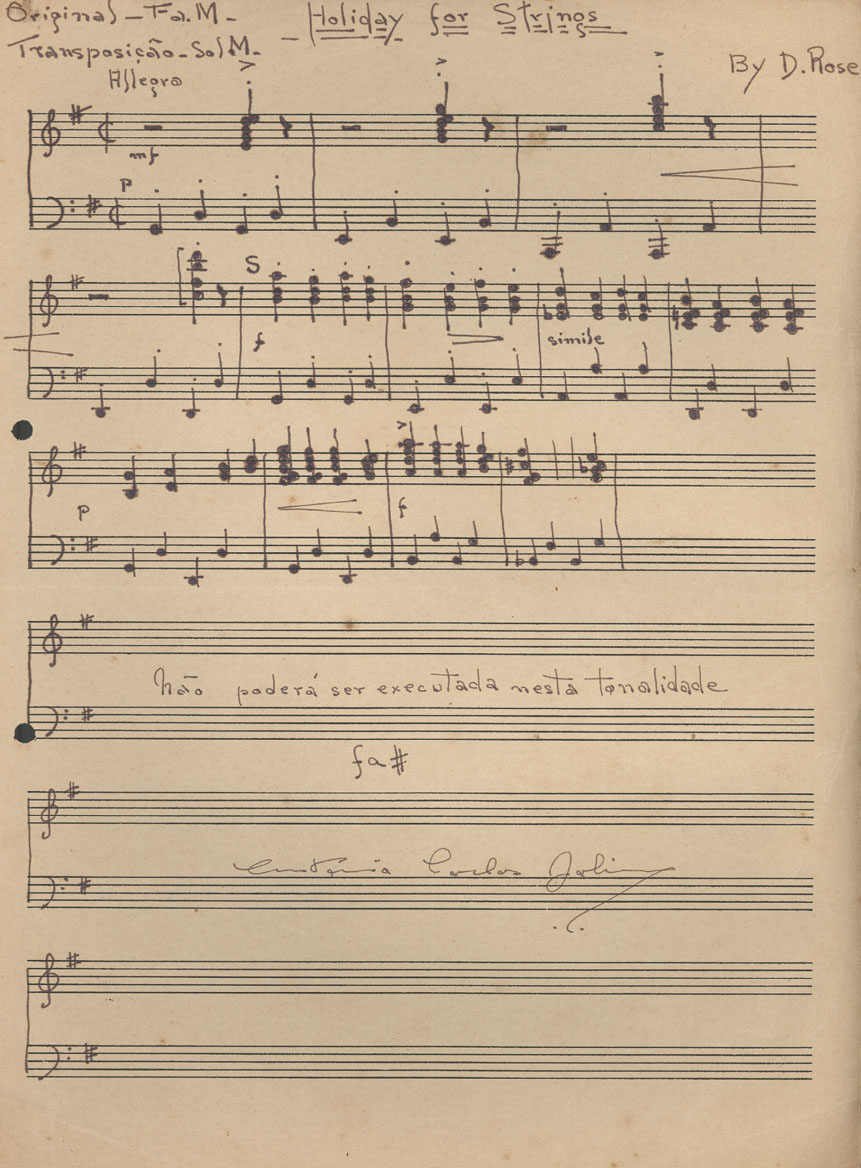 Original - Fa.M - - Holiday for Strings -
Transposição - Sol M.
By D. Rose
Allegro
mf
p
S
f
simile
p
f
Não poderá ser executada nesta tonalidade
fa#
Carlos